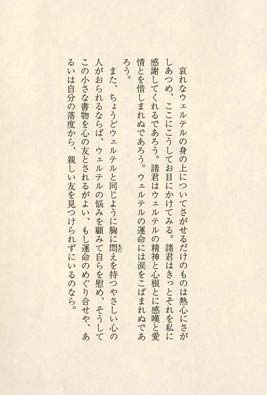 哀れなウェルテルの身の上についてさがせるだけのものは熱心にさが
しあつめ、ここにこうしてお目にかけてみる。諸君はきっとそれを私に
感謝してくれるであろう。諸君はウェルテルの精神と心根とに感嘆と愛
情とを惜しまれぬであろう。ウェルテルの運命には涙をこばまれぬであ
ろう。
また、ちょうどウェルテルと同じように胸に悶えを持つやさしい心の
人がおられるならば、ウェルテルの悩みを顧みて自らを慰め、そうして
この小さな書物を心の友とされるがよい、もし運命のめぐり合せや、あ
るいは自分の落度から、親しい友を見つけられずにいるのなら。